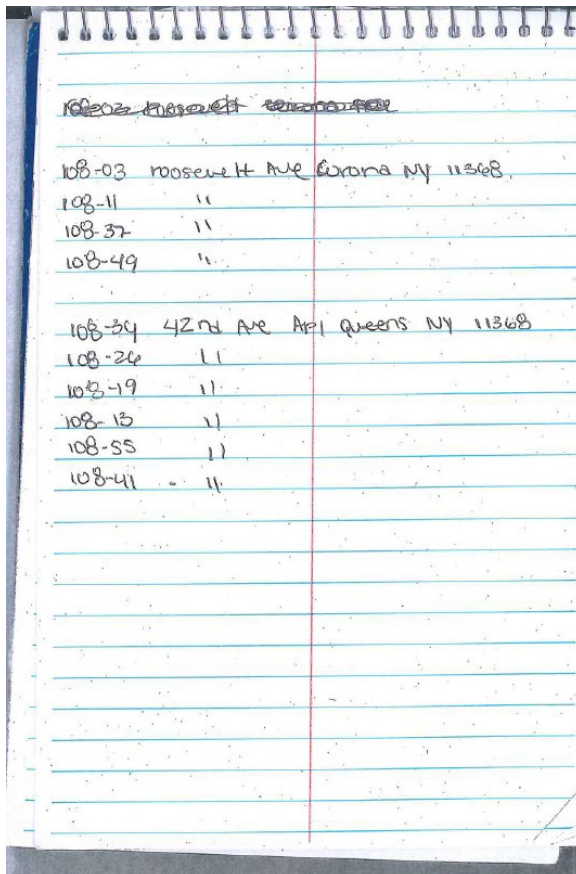 108-03 roosevelt Ave Corona NY 11368
108-11 "
108-37 "
108-49 "
108-34 42nd Ave Apt Queens NY 11368
108-26 "
108-19 "
108-13 "
108-55 "
108-41 - "